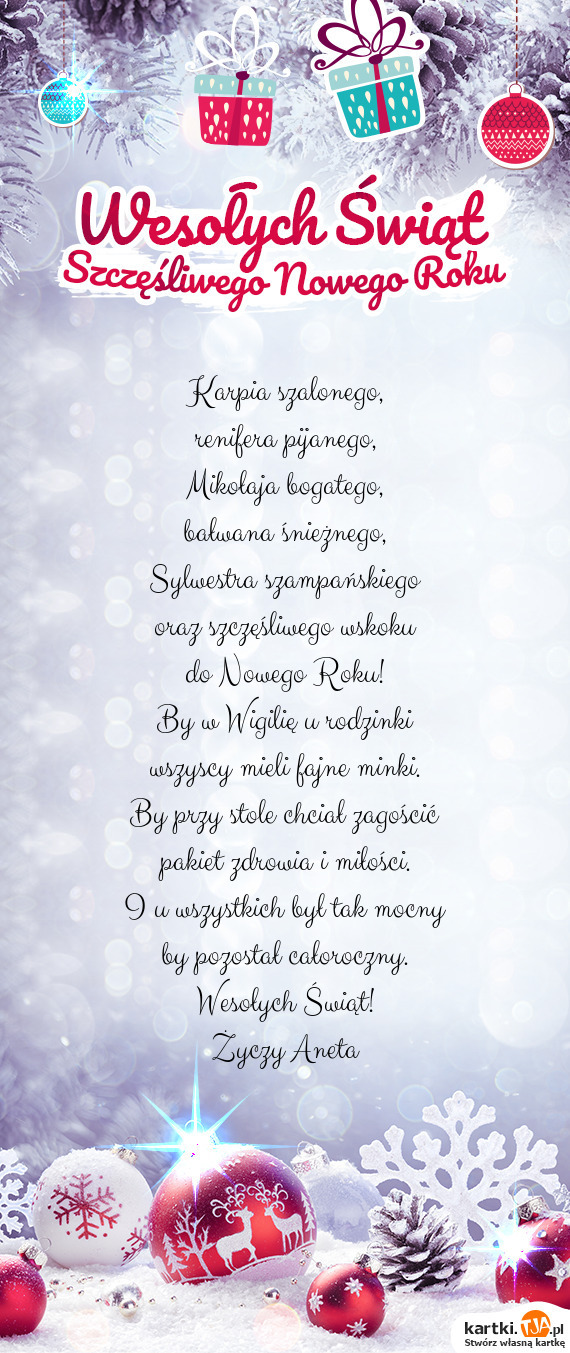 Wesołych Świąt
Szczęśliwego Nowego Roku
Karpia szalonego,
renifera pijanego,
Mikołaja bogatego,
bałwana śnieżnego,
Sylwestra szampańskiego
oraz szczęśliwego wskoku
do Nowego Roku!
By w Wigilię u rodzinki
wszyscy mieli fajne minki.
By przy stole chciał zagościć
pakiet zdrowia i miłości.
I u wszystkich był tak mocny
by pozostał całoroczny.
Wesołych Świąt!
Życzy Aneta
kartki.TJA.pl
Stwórz własną kartkę